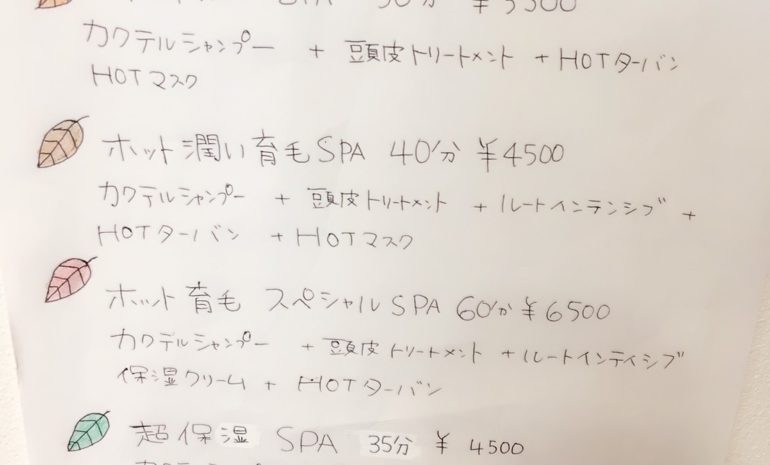 SPA 30分 ¥3500
カクテルシャンプー + 頭皮トリートメント + HOTターバン
HOTマスク
ホット潤い育毛SPA 40分 ¥4500
カクテルシャンプー + 頭皮トリートメント + ルートインテンシブ +
HOTターバン + HOTマスク
ホット育毛 スペシャルSPA 60分 ¥6500
カクテルシャンプー + 頭皮トリートメント + ルートインティシブ
保湿クリーム + HOTターバン
超保湿 SPA 35分 ¥ 4500